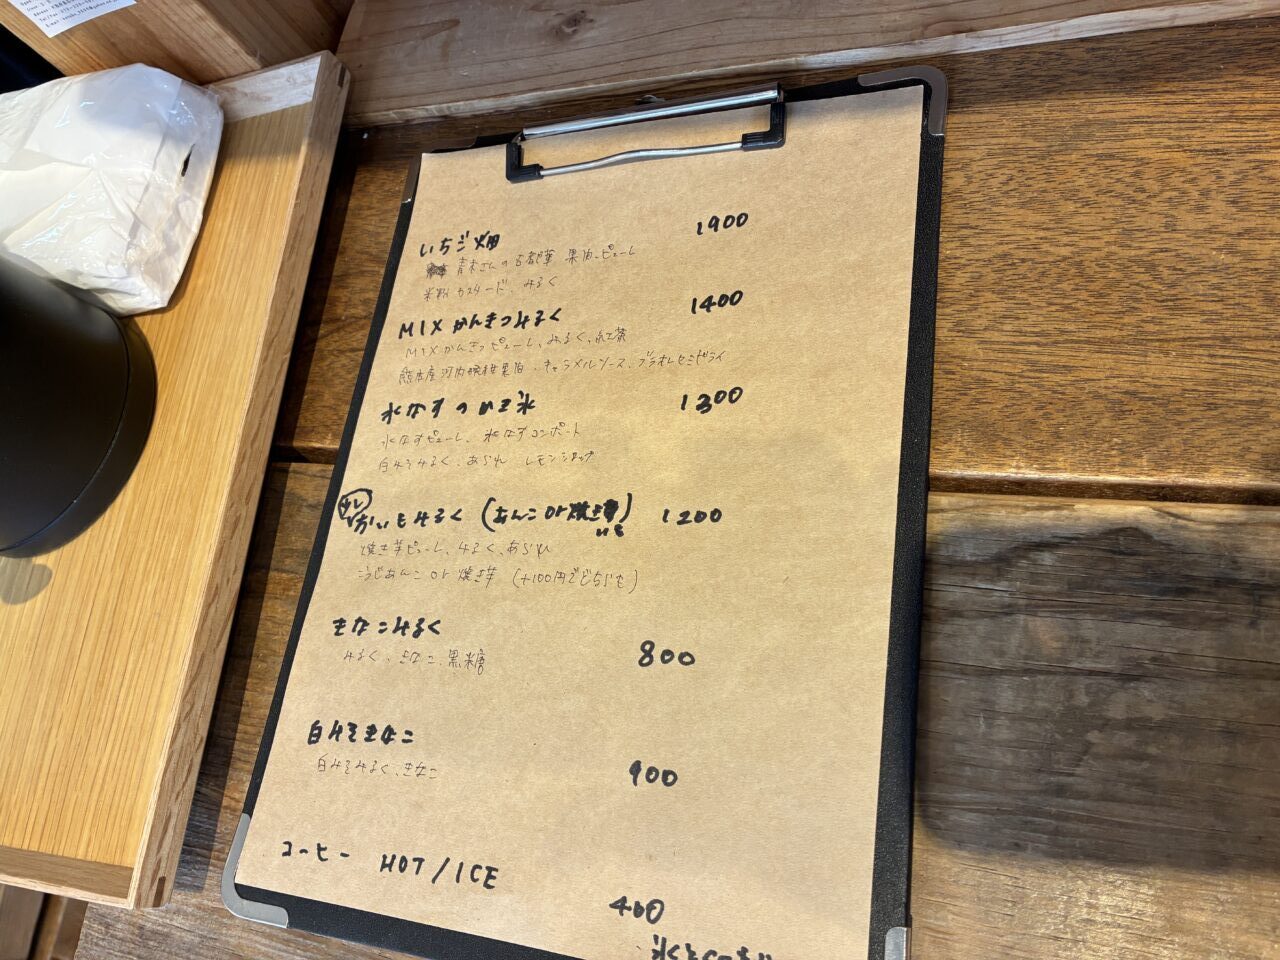 いちご畑 1900
青木さんの古都華 果肉、ピューレ
米粉カスタード、みるく
MIXかんきつみるく 1400
MIXかんきつピューレ、みるく、紅茶
熊本産河内晩柑果肉、キャラメルソース、ブラオレセミドライ
水なすつめ氷 1300
水なすピューレ、水なすコンポート
白みそみるく、あられ レモンシロップ
いもみるく (あんこ or 焼き芋) 1200
焼き芋ピューレ、みるく、あられ
こうじあんこ or 焼き芋 (+100円でどちらも)
きなこみるく 800
みるく、きなこ、黒糖
白みそきなこ 900
白みそみるく、きなこ
コーヒー HOT / ICE
400